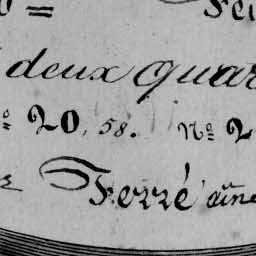 deux quar
º 20, 58. Nº 2
Ferré aîne